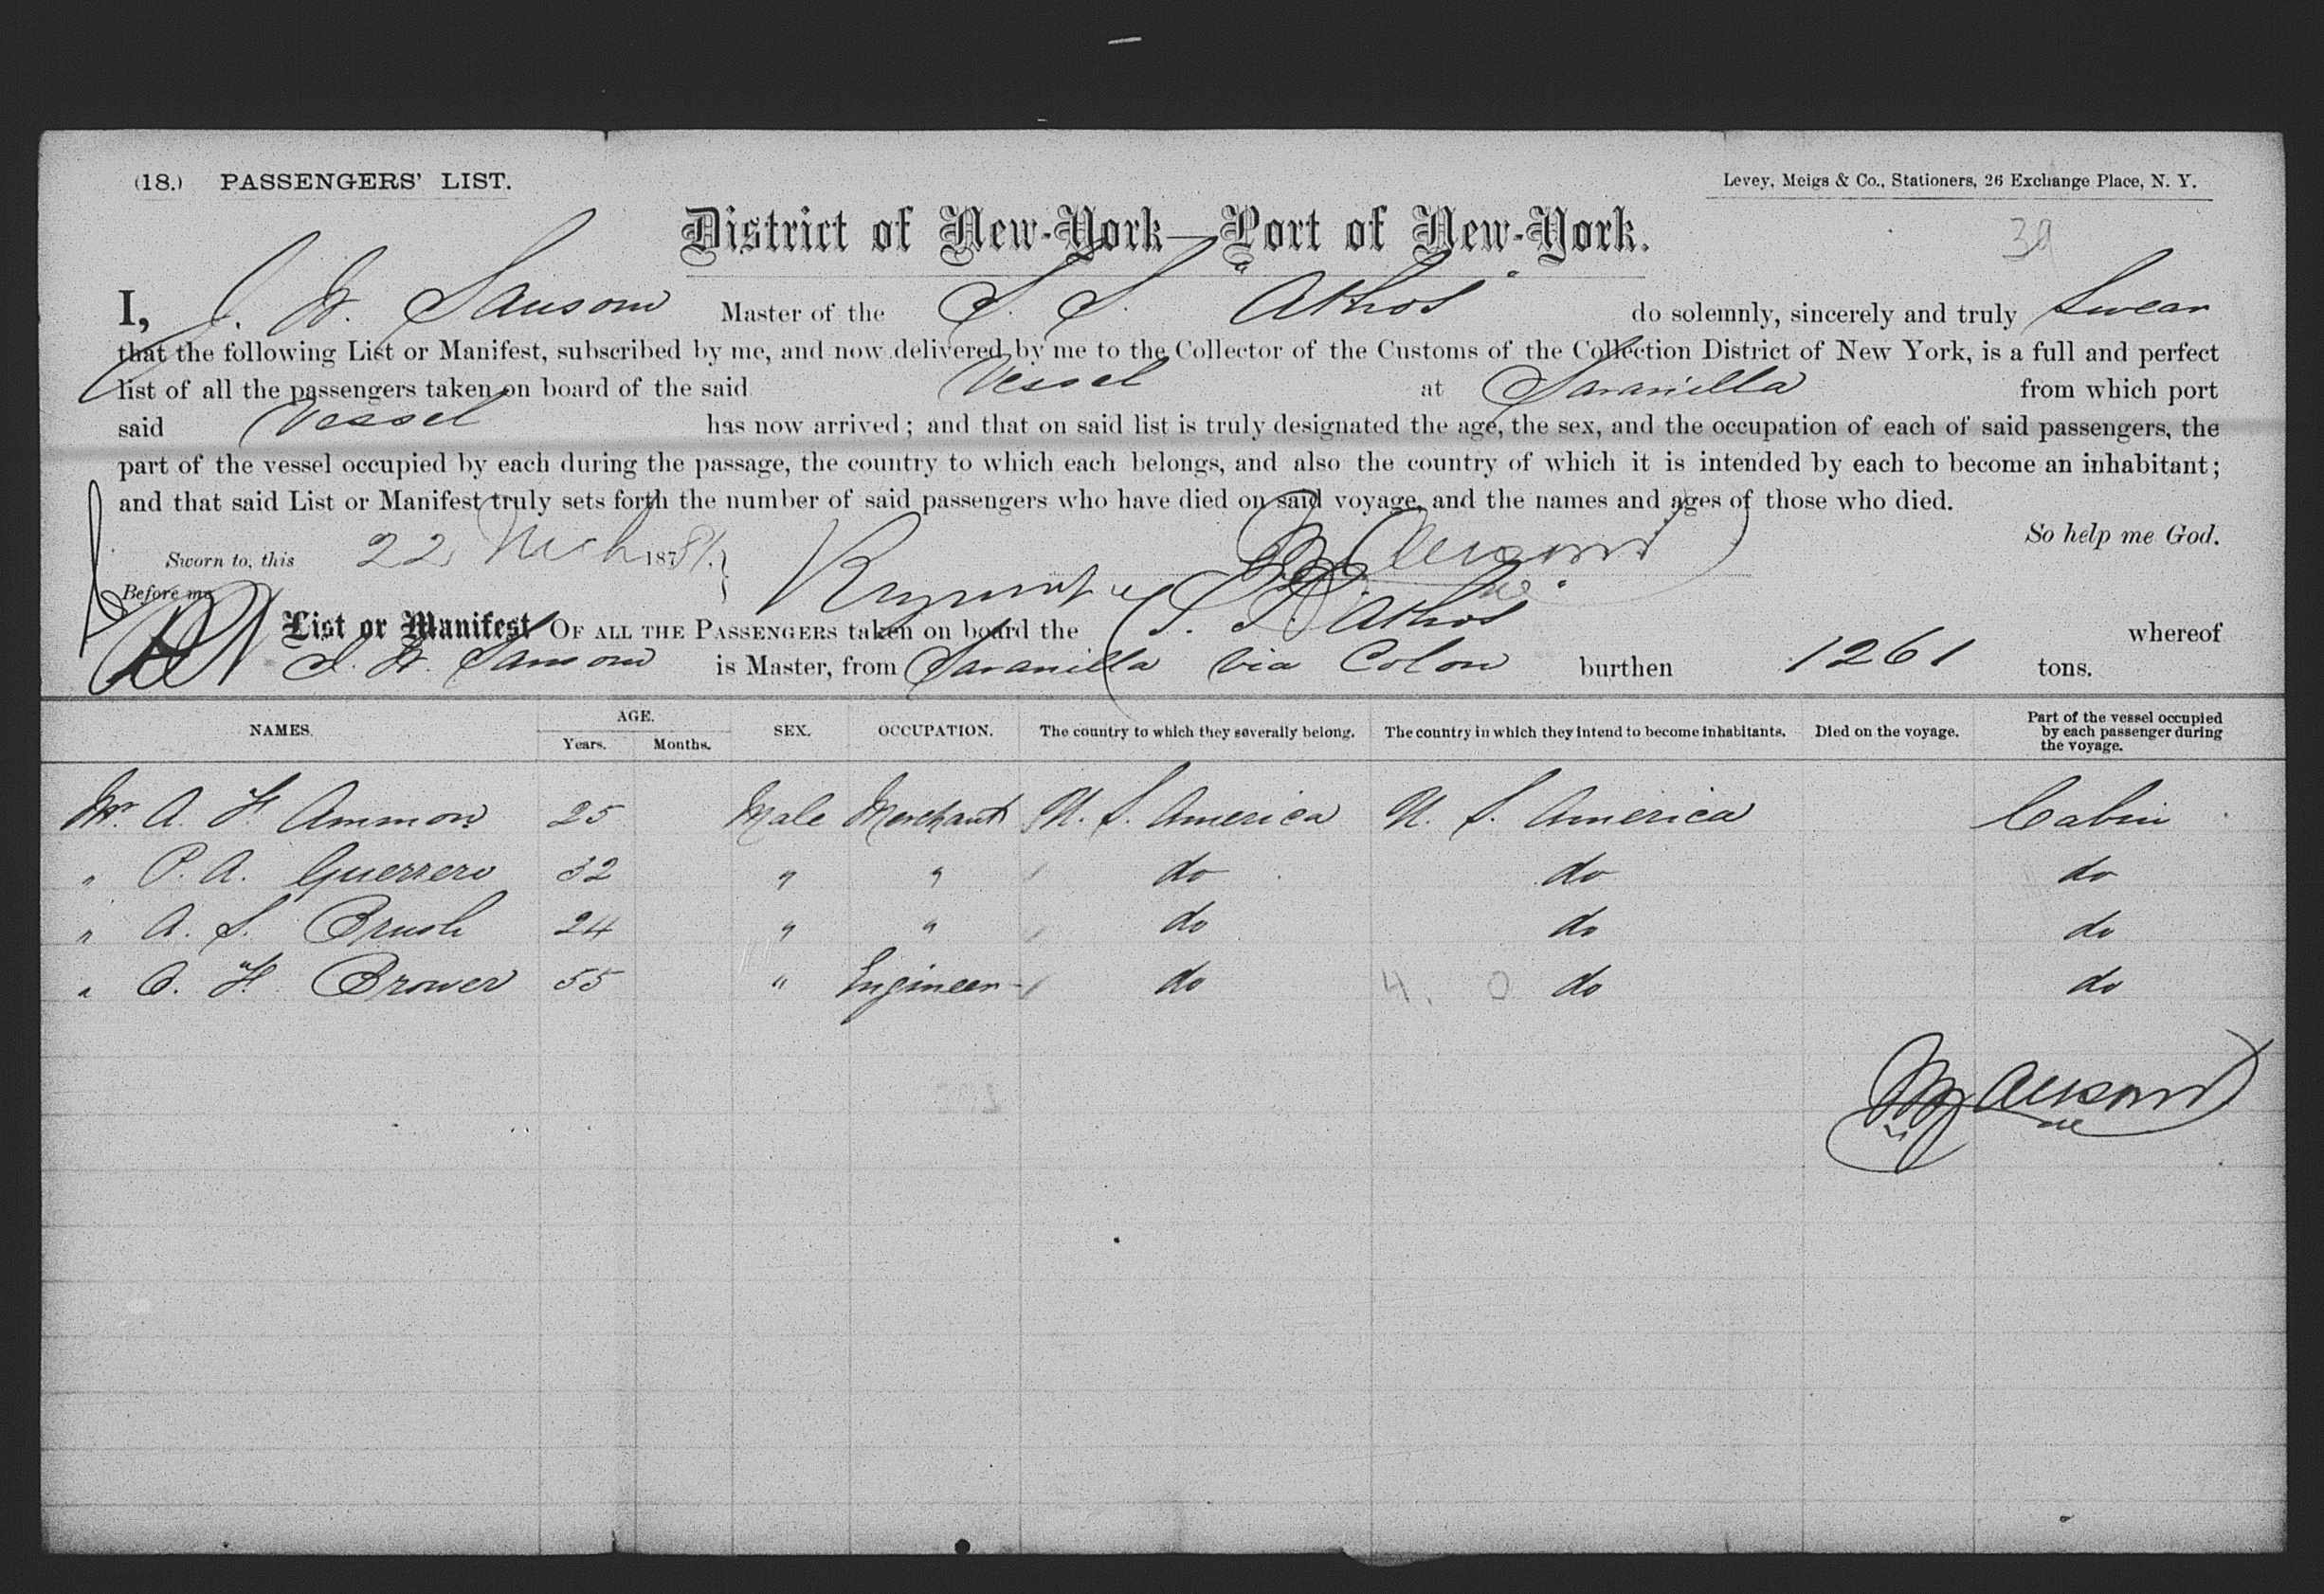 (18.) PASSENGERS' LIST.
Levey, Meigs & Co., Stationers, 26 Exchange Place, N. Y.
District of New-York—Port of New-York.
39
I, J. W. Sansom Master of the S. S. "Athos" do solemnly, sincerely and truly Swear
that the following List or Manifest, subscribed by me, and now delivered by me to the Collector of the Customs of the Collection District of New York, is a full and perfect
list of all the passengers taken on board of the said Vessel at Savanilla from which port
said Vessel has now arrived; and that on said list is truly designated the age, the sex, and the occupation of each of said passengers, the
part of the vessel occupied by each during the passage, the country to which each belongs, and also the country of which it is intended by each to become an inhabitant;
and that said List or Manifest truly sets forth the number of said passengers who have died on said voyage, and the names and ages of those who died.
So help me God.
Sworn to, this 22 Mch 1881.
Before me
List or Manifest OF ALL THE PASSENGERS taken on board the S. S. "Athos" whereof
J. W. Sansom is Master, from Savanilla via Colon burthen 1261 tons.
NAMES. AGE. Years. Months. SEX. OCCUPATION. The country to which they severally belong. The country in which they intend to become inhabitants. Died on the voyage. Part of the vessel occupied by each passenger during the voyage.
Mr. A. H Ammon 25 Male Merchant U. S. America U. S. America Cabin
" P. A. Guerrero 32 " " do do do
" A. S. Brush 24 " " do do do
" C. H. Brower 55 " Engineer do 4. 0 do do